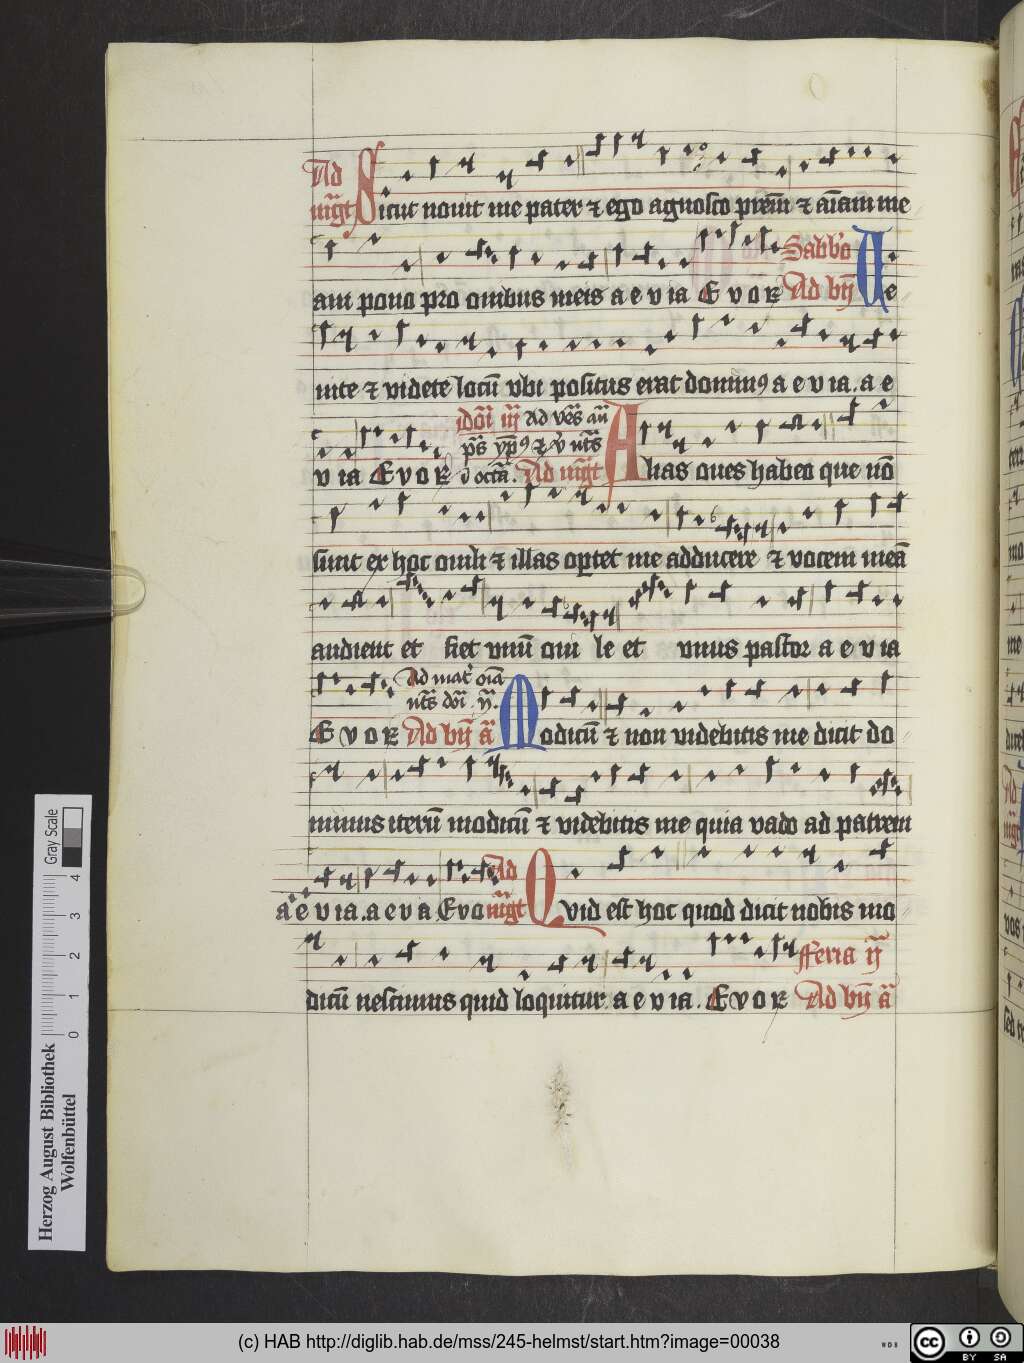 Ad
mgt Sicut nouit me pater ⁊ ego agnosco prem ⁊ aīam me
am pono pro omibus meis a e v ia E v o R Sabbo Ad bn Ue
nite ⁊ videte locū vbi positus erat dominꝰ a e v ia. a e
v ia E v o R
Ad mgt Alias oues habeo que nō
sunt ex hoc ouili ⁊ illas optet me adducere ⁊ vocem meā
audient et fiet vnū oui le et vnus pastor a e v ia
E v o R Ad bn a Modicū ⁊ non videbitis me dicit do
minus iterū modicū ⁊ videbitis me quia vado ad patrem
a e v ia. a e v a. E v o Ad mgt Quid est hoc quod dicit nobis mo
dicū nescimus quid loquitur a e v ia. E v o R
fferia ij
Ad bn a
Herzog August Bibliothek
Wolfenbüttel
Gray Scale
0 1 2 3 4
(c) HAB http://diglib.hab.de/mss/245-helmst/start.htm?image=00038
WDB
cc BY SA